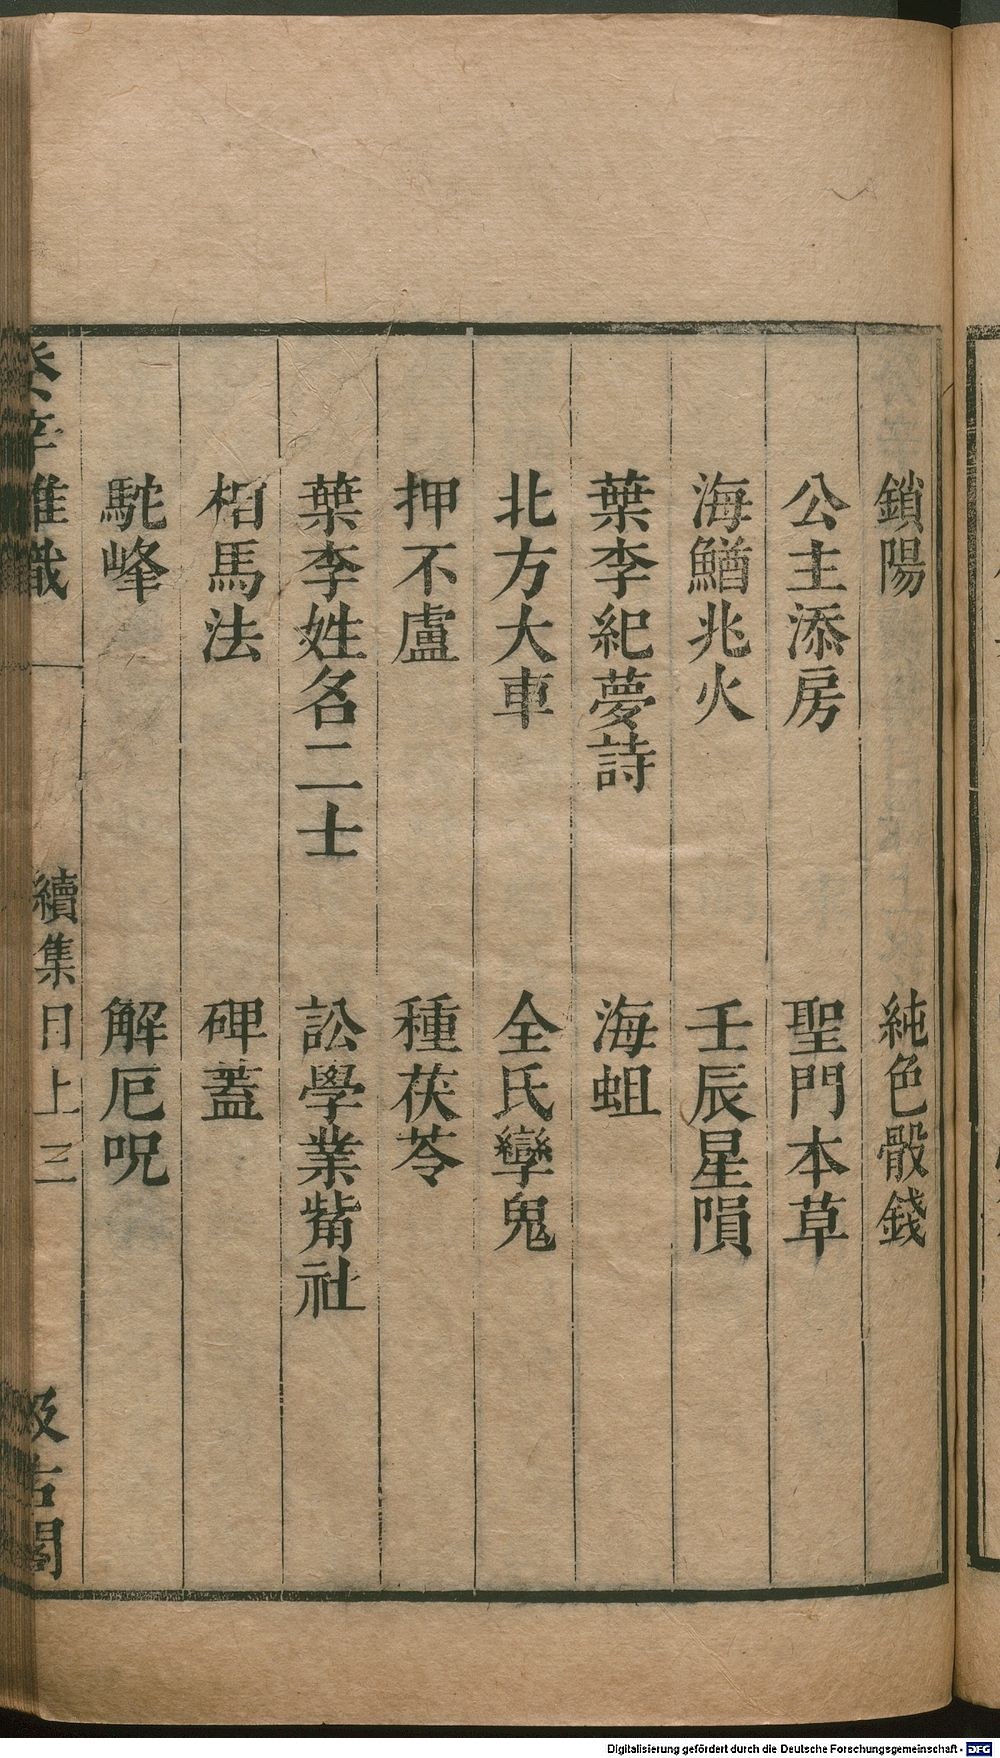 鎖陽　純色骰錢
公主添房　聖門本草
海鰌兆火　壬辰星隕
葉李紀夢詩　海蛆
北方大車　全氏孿鬼
押不盧　種茯苓
葉李姓名二士　訟學業觜社
相馬法　碑蓋
駝峰　解厄呪
癸辛雜識　續集目上　三　汲古閣
Digitalisierung gefördert durch die Deutsche Forschungsgemeinschaft - DFG